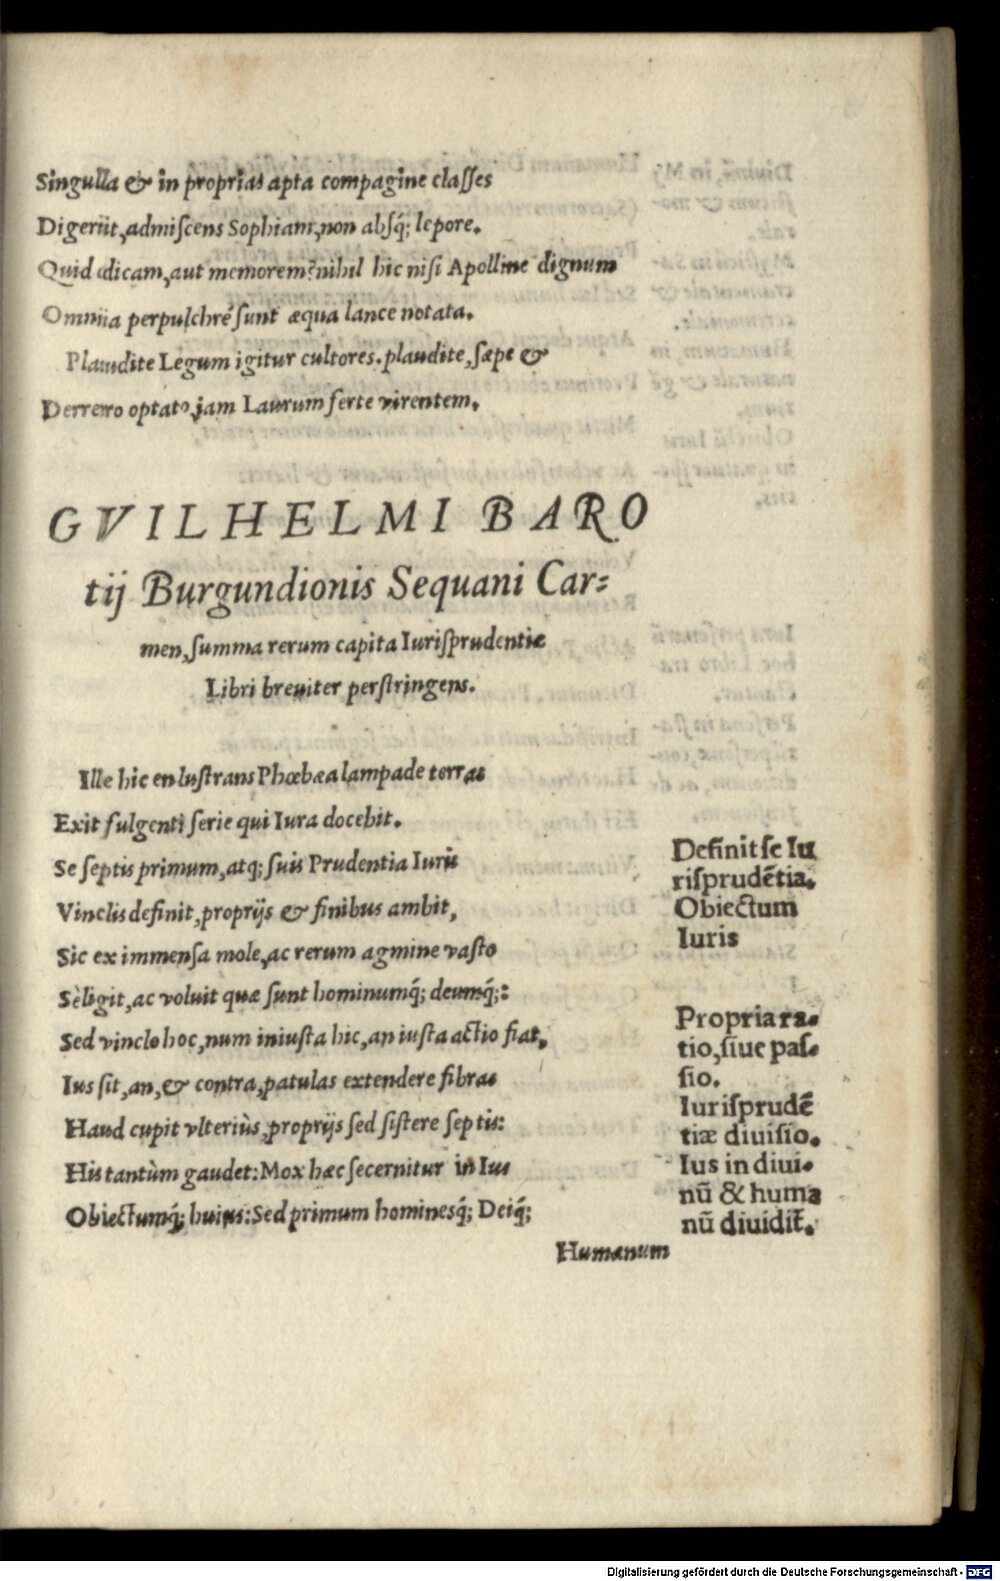 Singulla & in proprias apta compagine claſſes
Digeriit, admiſcens Sophiam, non abſq́; lepore.
Quid dicam, aut memorem? nihil hic niſi Apolline dignum
Omnia perpulchrè ſunt æqua lance notata.
Plaudite Legum igitur cultores. plaudite, ſæpe &
Derrero optato jam Laurum ferte virentem.
GVILHELMI BARO
tij Burgundionis Sequani Car=
men, ſumma rerum capita Iuriſprudentiæ
Libri breuiter perſtringens.
Ille hic en luſtrans Phœbæa lampade terras
Exit fulgenti ſerie qui Iura docebit.
Se ſeptis primum, atq; ſuis Prudentia Iuris
Vinclis definit, proprijs & finibus ambit,
Sic ex immenſa mole, ac rerum agmine vaſto
Sèligit, ac voluit quæ ſunt hominumq́; deumq́;:
Sed vinclo hoc, num iniuſta hic, an iuſta actio fiat,
Ius ſit, an, & contra, patulas extendere fibras
Haud cupit vlteriùs, proprijs ſed ſiſtere ſeptis:
His tantùm gaudet: Mox hæc ſecernitur in Ius
Obiectumq́; huius: Sed primum hominesq́; Deiq́;
Humanum
Definit ſe Iu
riſprudẽtia.
Obiectum
Iuris
Propria ra-
tio, ſiue paſ-
ſio.
Iuriſprudẽ
tiæ diuiſio.
Ius in diui-
nũ & huma
nũ diuidit.
Digitalisierung gefördert durch die Deutsche Forschungsgemeinschaft - DFG